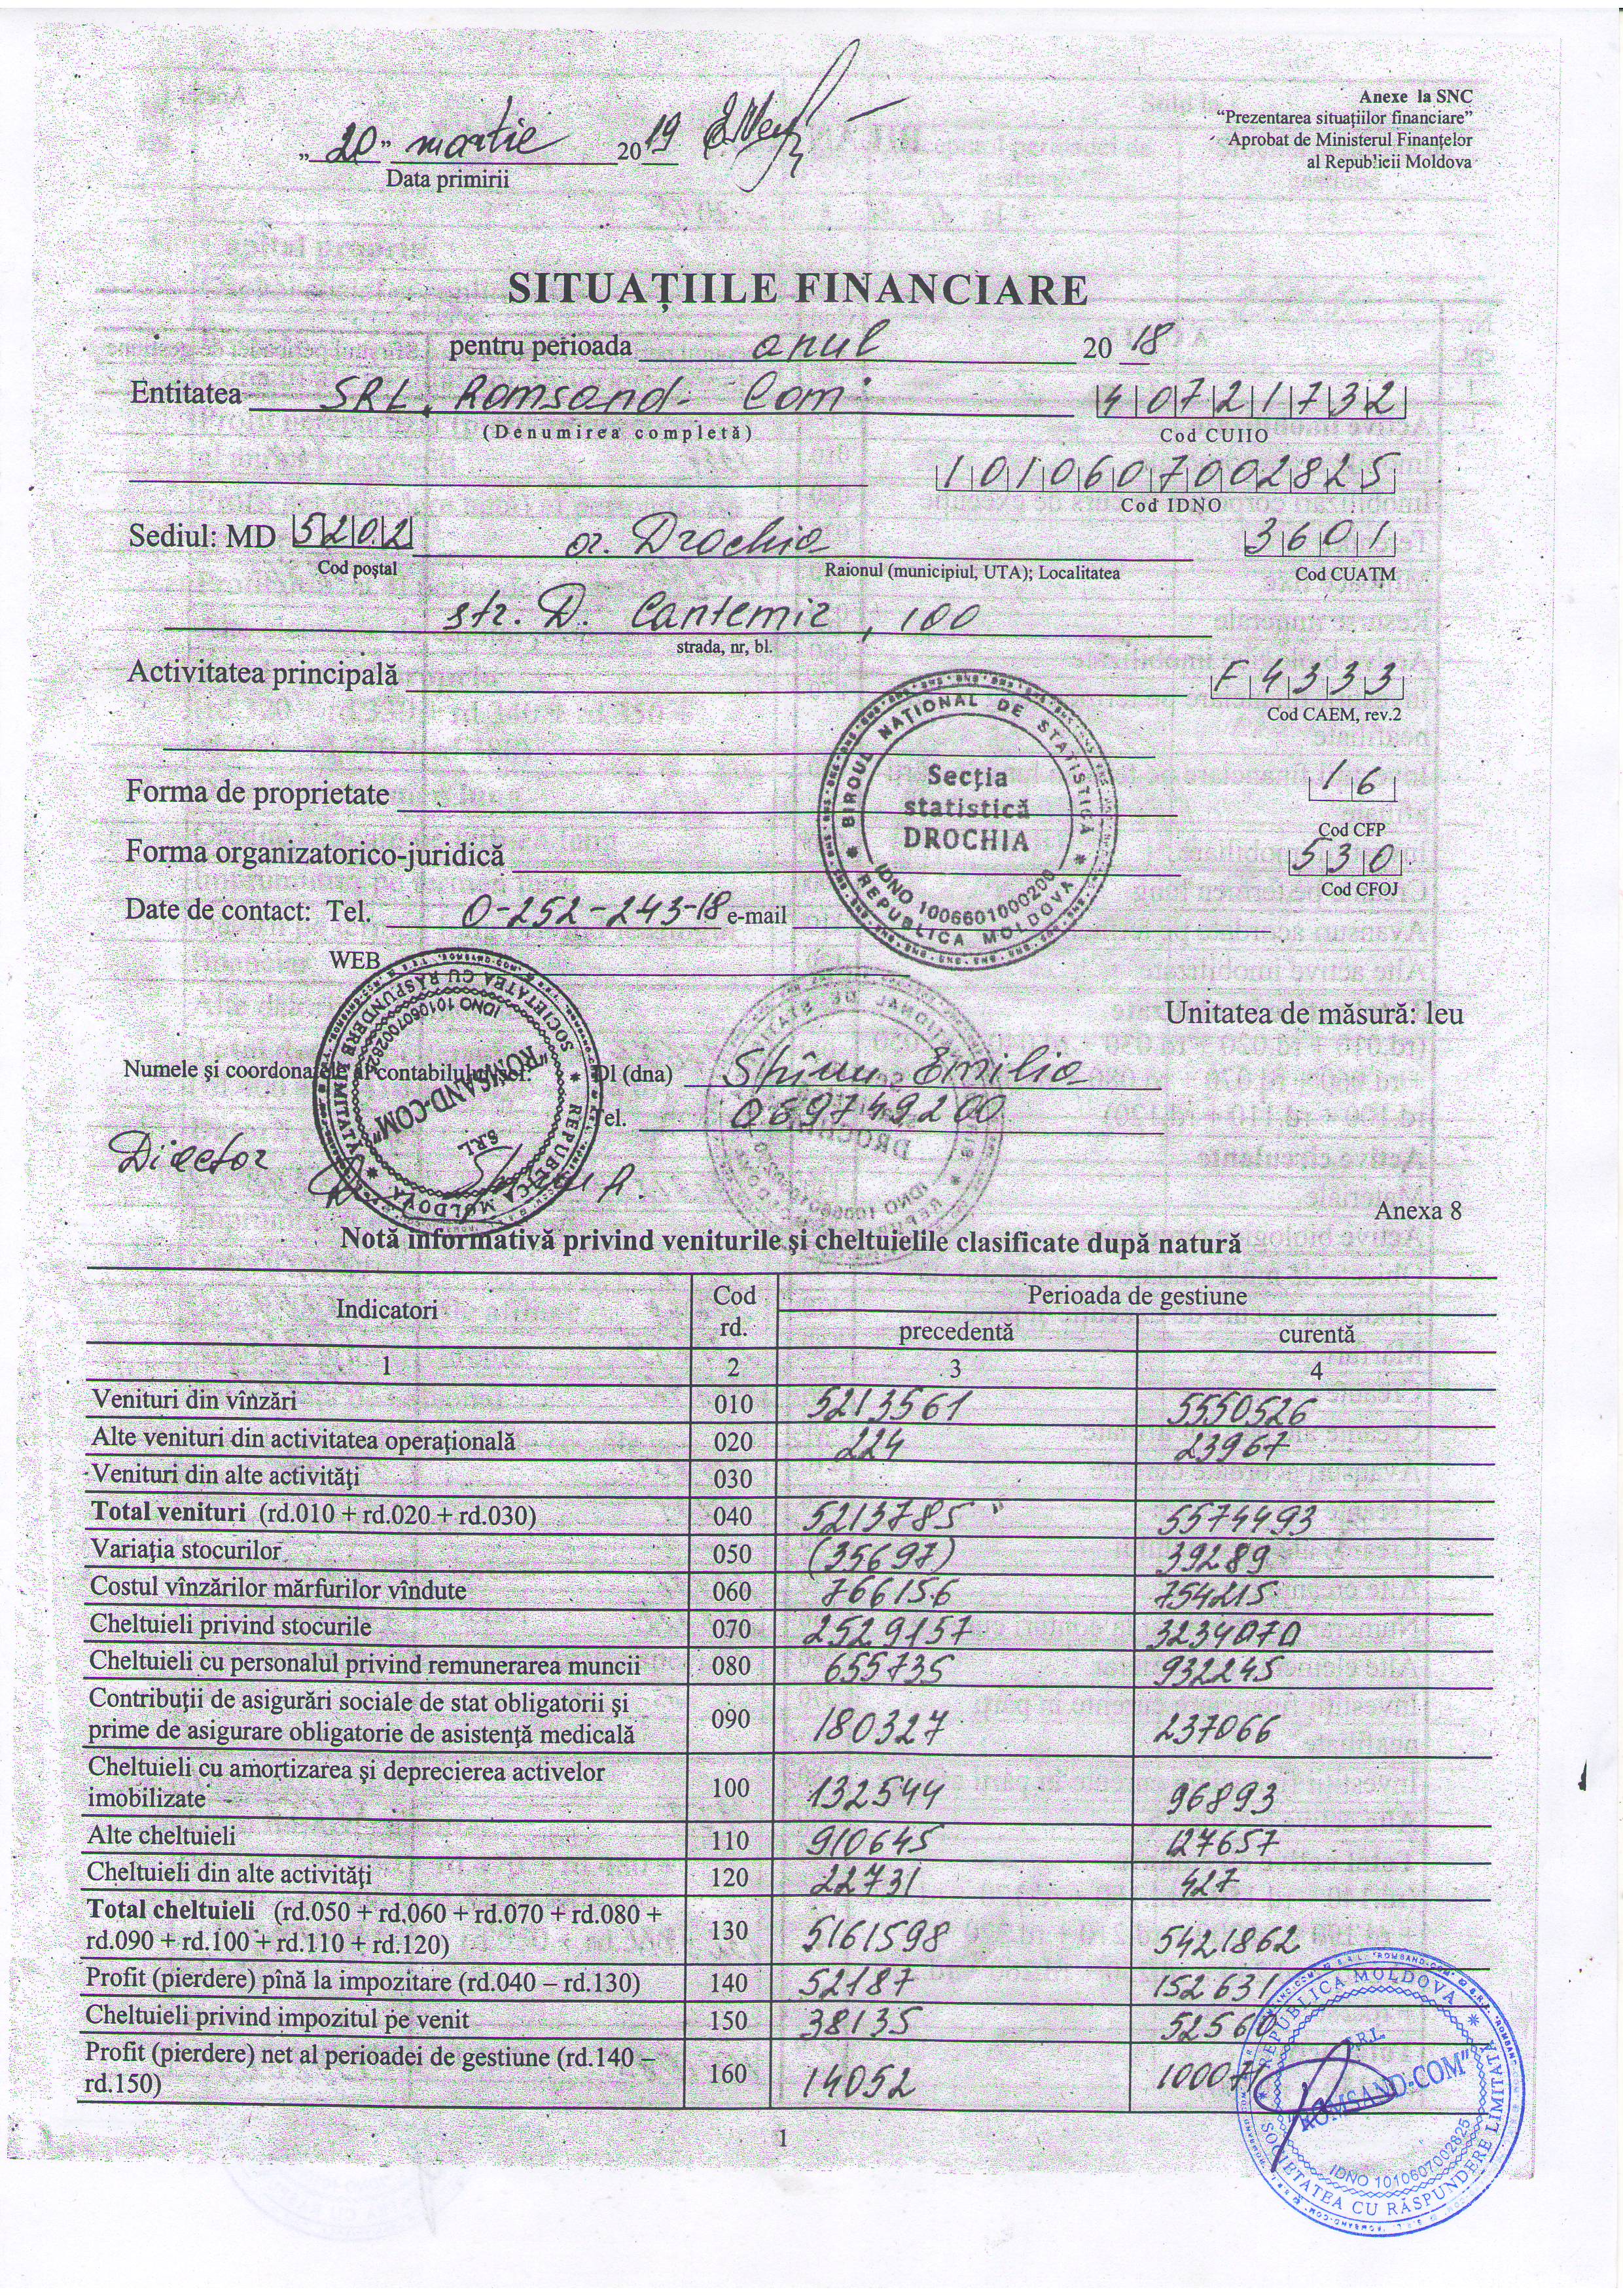 Anexe la SNC
“Prezentarea situațiilor financiare”
Aprobat de Ministerul Finanțelor
al Republicii Moldova
„20” martie 2019
Data primirii
SITUAȚIILE FINANCIARE
pentru perioada anul 2018
Entitatea SRL. Romsand-Com 40721732
(Denumirea completă) Cod CUIIO
1010607002825
Cod IDNO
Sediul: MD 5202 or. Drochia 3601
Cod poștal Raionul (municipiul, UTA); Localitatea Cod CUATM
str. D. Cantemir, 100
strada, nr, bl.
Activitatea principală F4333
Cod CAEM, rev.2
Forma de proprietate 16
Cod CFP
Forma organizatorico-juridică 530
Cod CFOJ
Date de contact: Tel. 0-252-243-18 e-mail
WEB
BIROUL NAȚIONAL DE STATISTICĂ
Secția
statistică
DROCHIA
IDNO 1006601000200
REPUBLICA MOLDOVA
Unitatea de măsură: leu
Numele şi coordonatele al contabilului-şef: Dl (dna) Spînu Emilia
Tel. 069749200
Director
SOCIETATEA CU RĂSPUNDERE LIMITATĂ
IDNO 1010607002825
"ROMSAND-COM"
S.R.L.
REPUBLICA MOLDOVA
Anexa 8
Notă informativă privind veniturile şi cheltuielile clasificate după natură
Indicatori Cod rd. Perioada de gestiune
precedentă curentă
1 2 3 4
Venituri din vînzări 010 5213561 5550526
Alte venituri din activitatea operaţională 020 224 23967
Venituri din alte activităţi 030
Total venituri (rd.010 + rd.020 + rd.030) 040 5213785 5574493
Variaţia stocurilor 050 (35697) 39289
Costul vînzărilor mărfurilor vîndute 060 766156 754215
Cheltuieli privind stocurile 070 2529157 3234070
Cheltuieli cu personalul privind remunerarea muncii 080 655735 932245
Contribuţii de asigurări sociale de stat obligatorii şi
prime de asigurare obligatorie de asistenţă medicală 090 180327 237066
Cheltuieli cu amortizarea şi deprecierea activelor
imobilizate 100 132544 96893
Alte cheltuieli 110 910645 127657
Cheltuieli din alte activităţi 120 22731 427
Total cheltuieli (rd.050 + rd.060 + rd.070 + rd.080 +
rd.090 + rd.100 + rd.110 + rd.120) 130 5161598 5421862
Profit (pierdere) pînă la impozitare (rd.040 – rd.130) 140 52187 152631
Cheltuieli privind impozitul pe venit 150 38135 52560
Profit (pierdere) net al perioadei de gestiune (rd.140 –
rd.150) 160 14052 100071
1
REPUBLICA MOLDOVA
S.R.L.
"ROMSAND-COM"
IDNO 1010607002825
SOCIETATEA CU RĂSPUNDERE LIMITATĂ